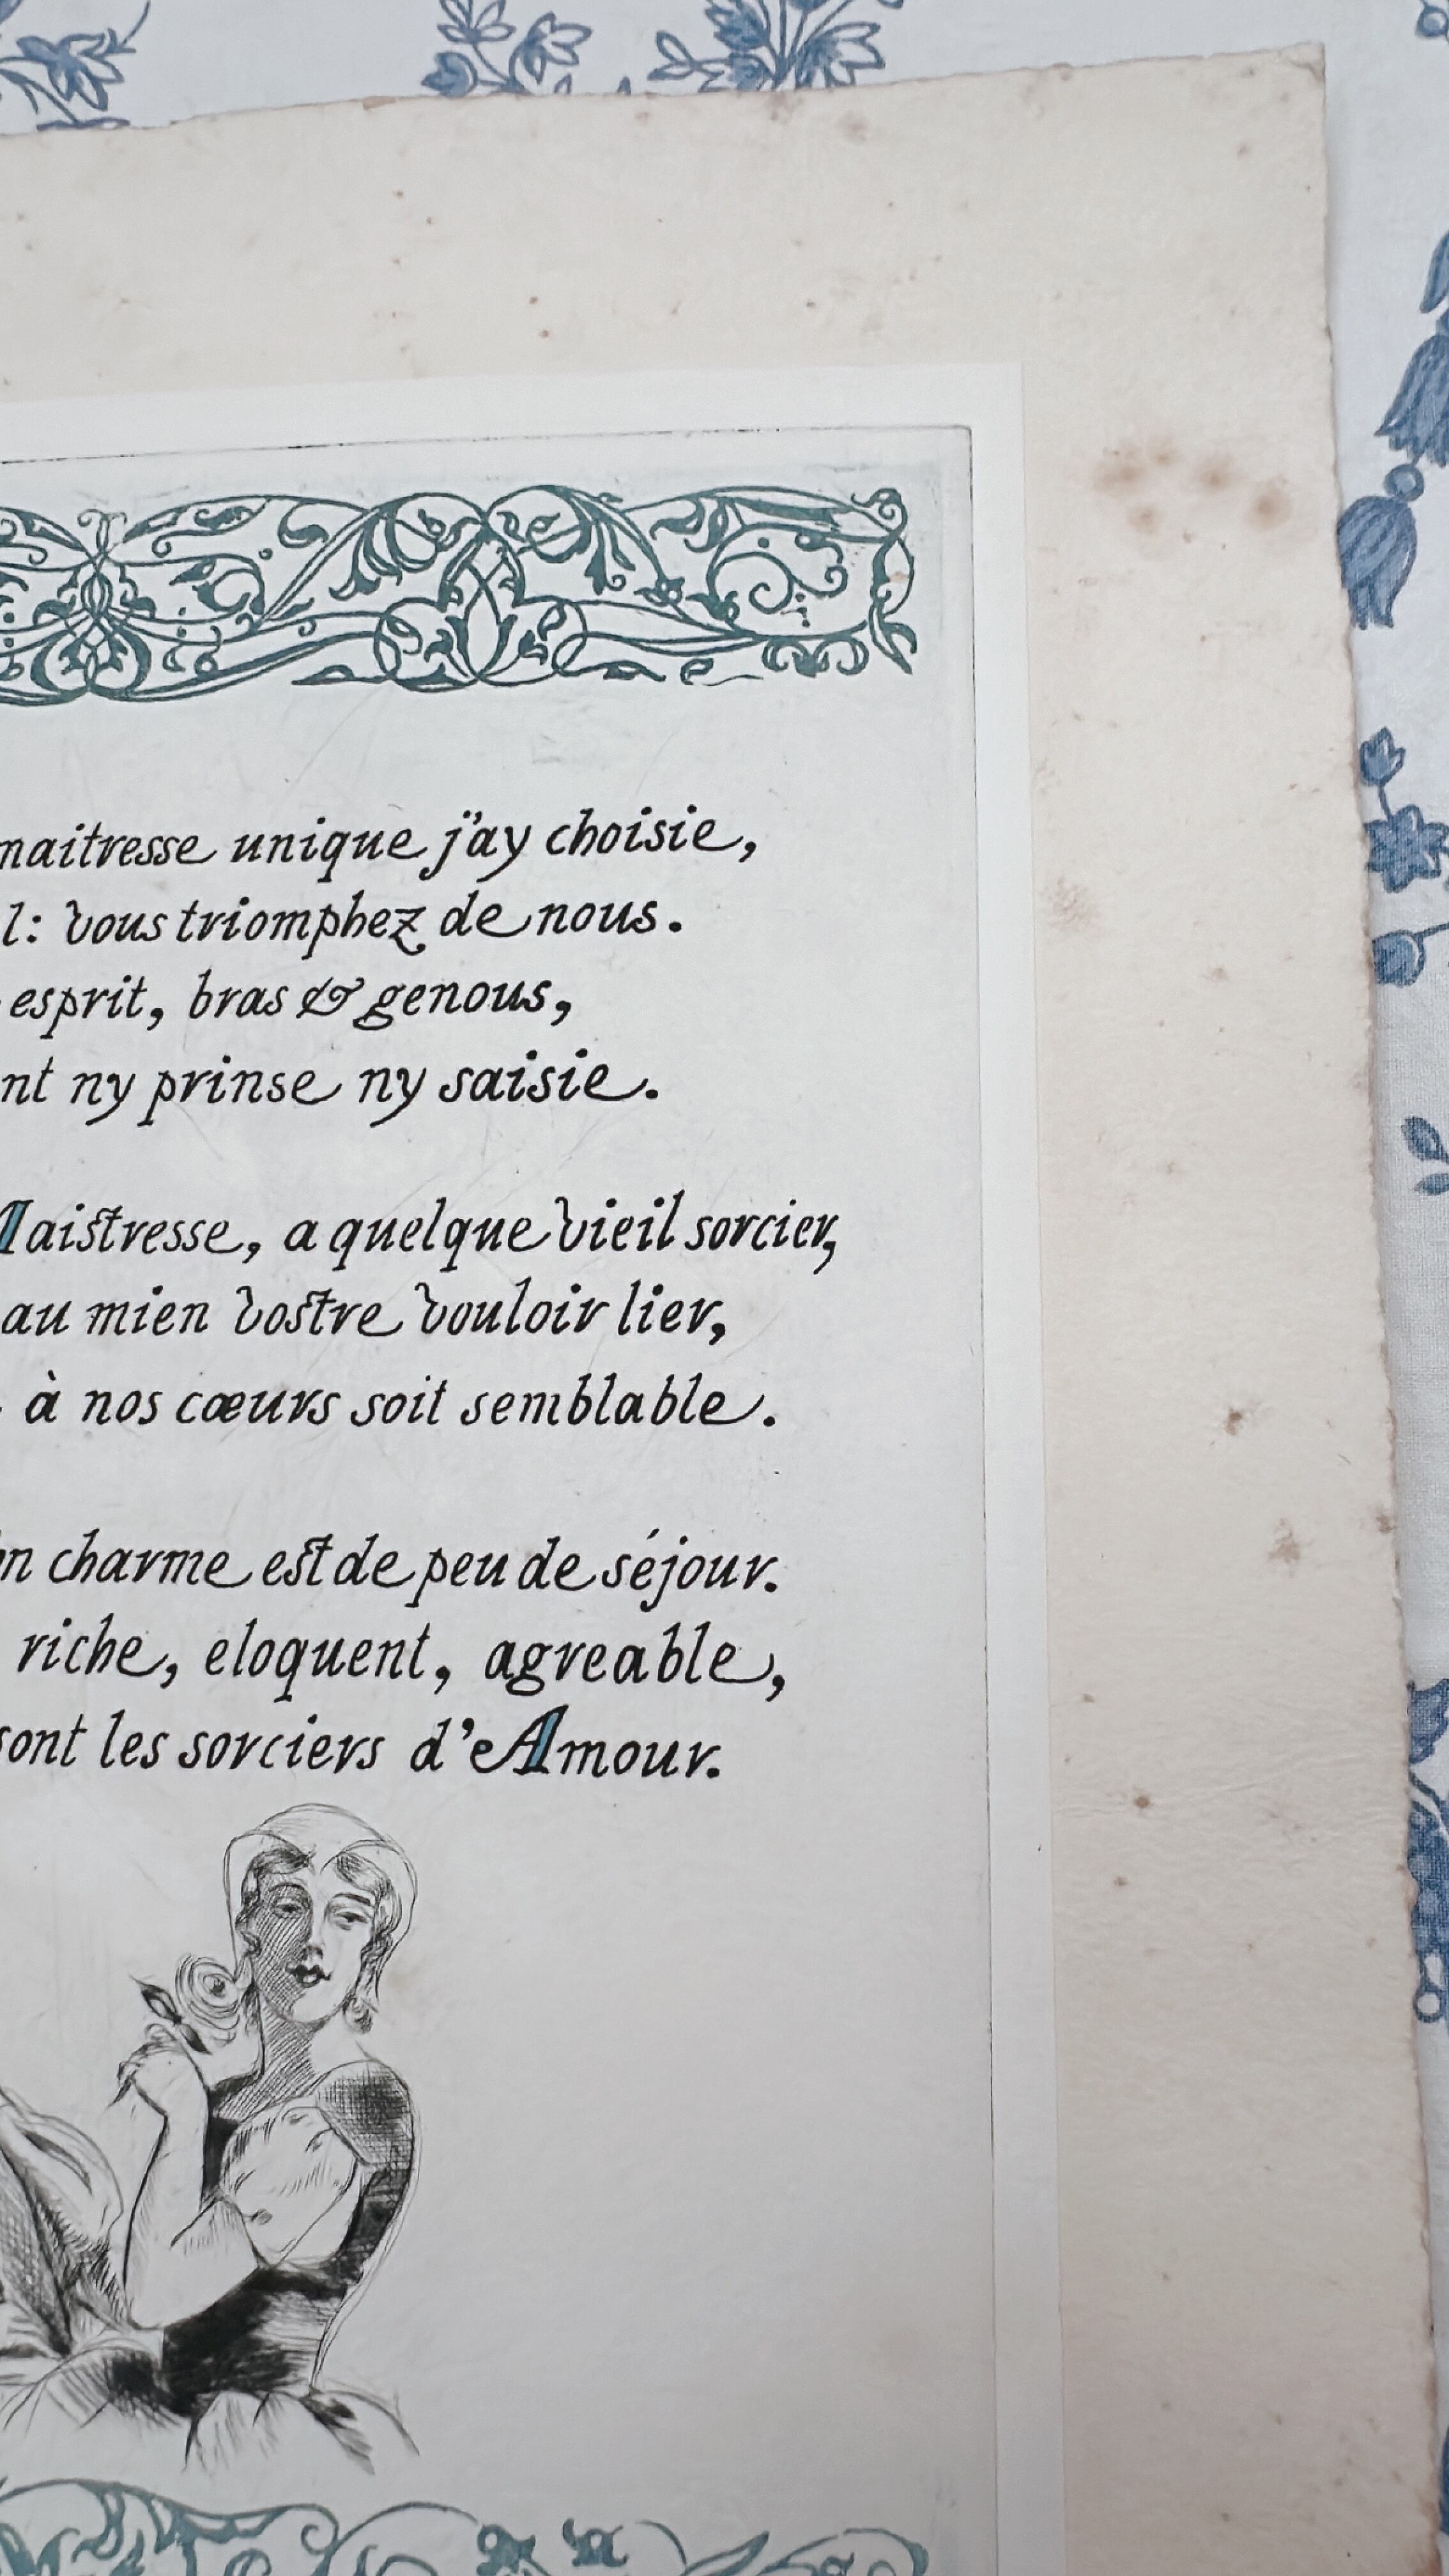 maitresse unique j'ay choisie,
l: vous triomphez de nous.
esprit, bras & genous,
nt ny prinse ny saisie.
Maistresse, a quelque vieil sorcier,
au mien vostre vouloir lier,
à nos cœurs soit semblable.
n charme est de peu de séjour.
riche, eloquent, agreable,
sont les sorciers d'Amour.